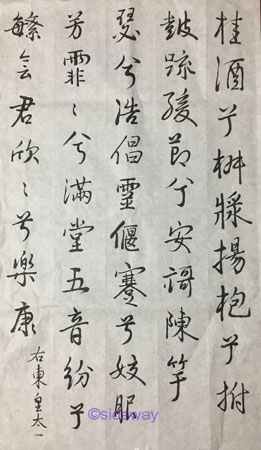 桂酒兮椒漿揚枹兮拊
鼓疏緩節兮安謌陳竽
瑟兮浩倡靈偃蹇兮姣服
芳霏〻兮滿堂五音紛兮
繁會君欣〻兮樂康
右東皇太一
©sideway